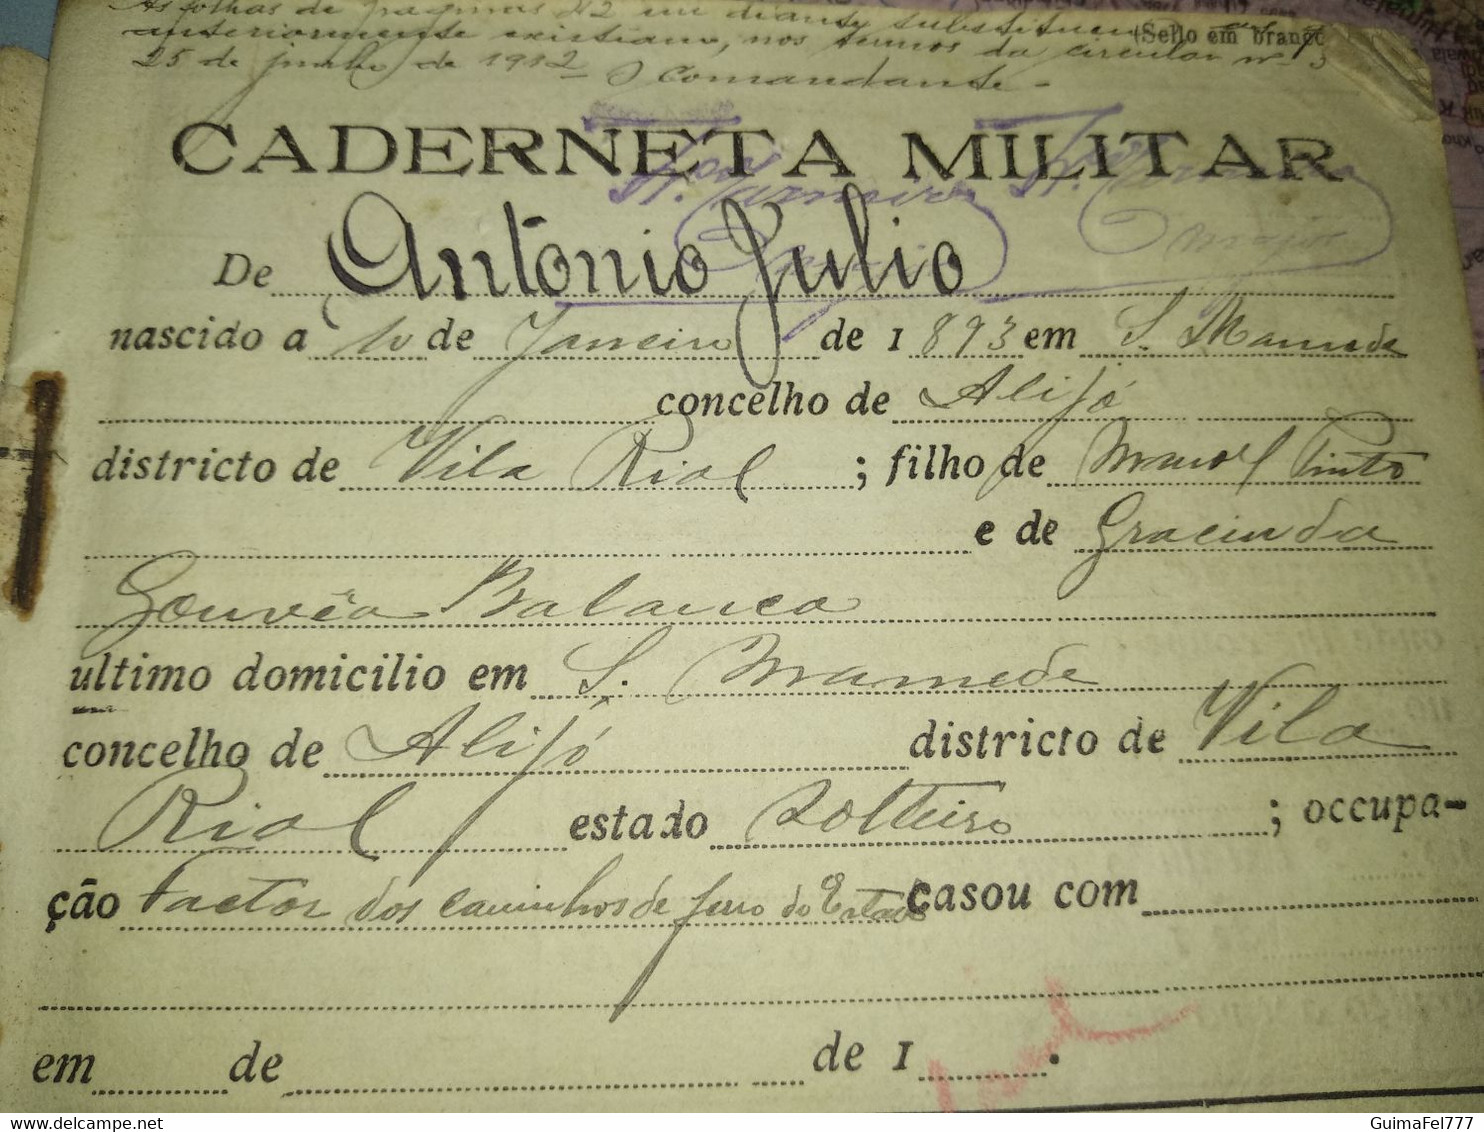 As folhas de paginas 42 em diante substituem as
(Sello em branco
anteriormente existiam, nos termos da circular nº
25 de junho de 1912 O Comandante -
CADERNETA MILITAR
De Antonio Julio
nascido a 10 de Janeiro de 1893 em S. Mamede
concelho de Alijó
districto de Vila Rial ; filho de Manoel Pinto
e de Gracinda
Gouvêa Balanca
ultimo domicilio em S. Mamede
concelho de Alijó districto de Vila
Rial estado Solteiro ; occupa-
ção Factor dos caminhos de ferro do Estado casou com
em de de 1 .
GuimaFel777